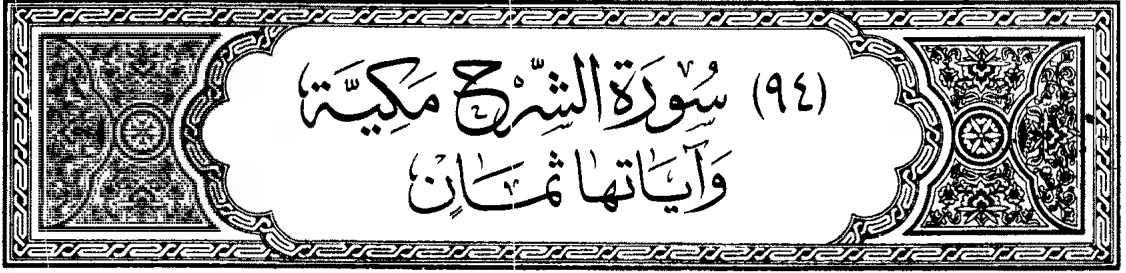 (٩٤) سُورَة الشّرْح مَكيَّة
وَآيَاتهَا ثَمَانٍ